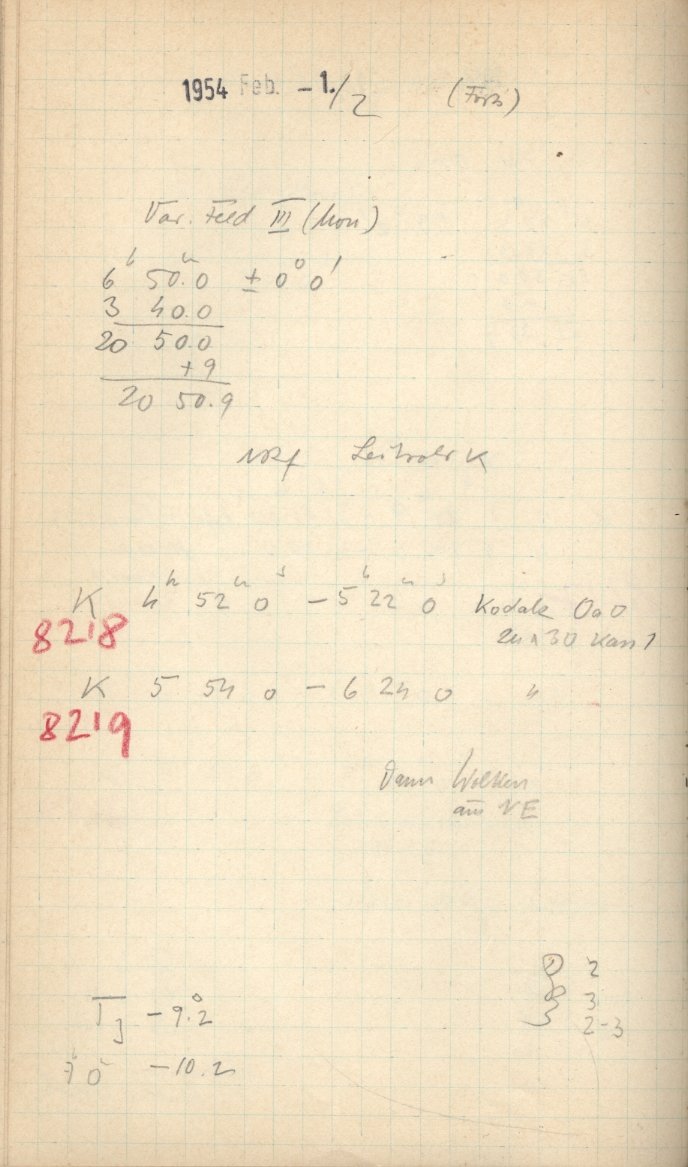 1954 Feb. -1./2 (Forts)
Var. Feld III (Mon)
6ʰ 50ᵐ.0 ± 0° 0'
3 40.0
20 50.0
+9
20 50.9
Leitrohr K
K 4ʰ 52ᵐ 0ˢ – 5ʰ 22ᵐ 0ˢ Kodak OaO
24 x 30 Kass 1
8218
K 5 54 0 – 6 24 0 "
8219
Dann Wolken
aus NE
2
3
T_J – 9°.2
2-3
7ʰ 0ᵐ – 10.2